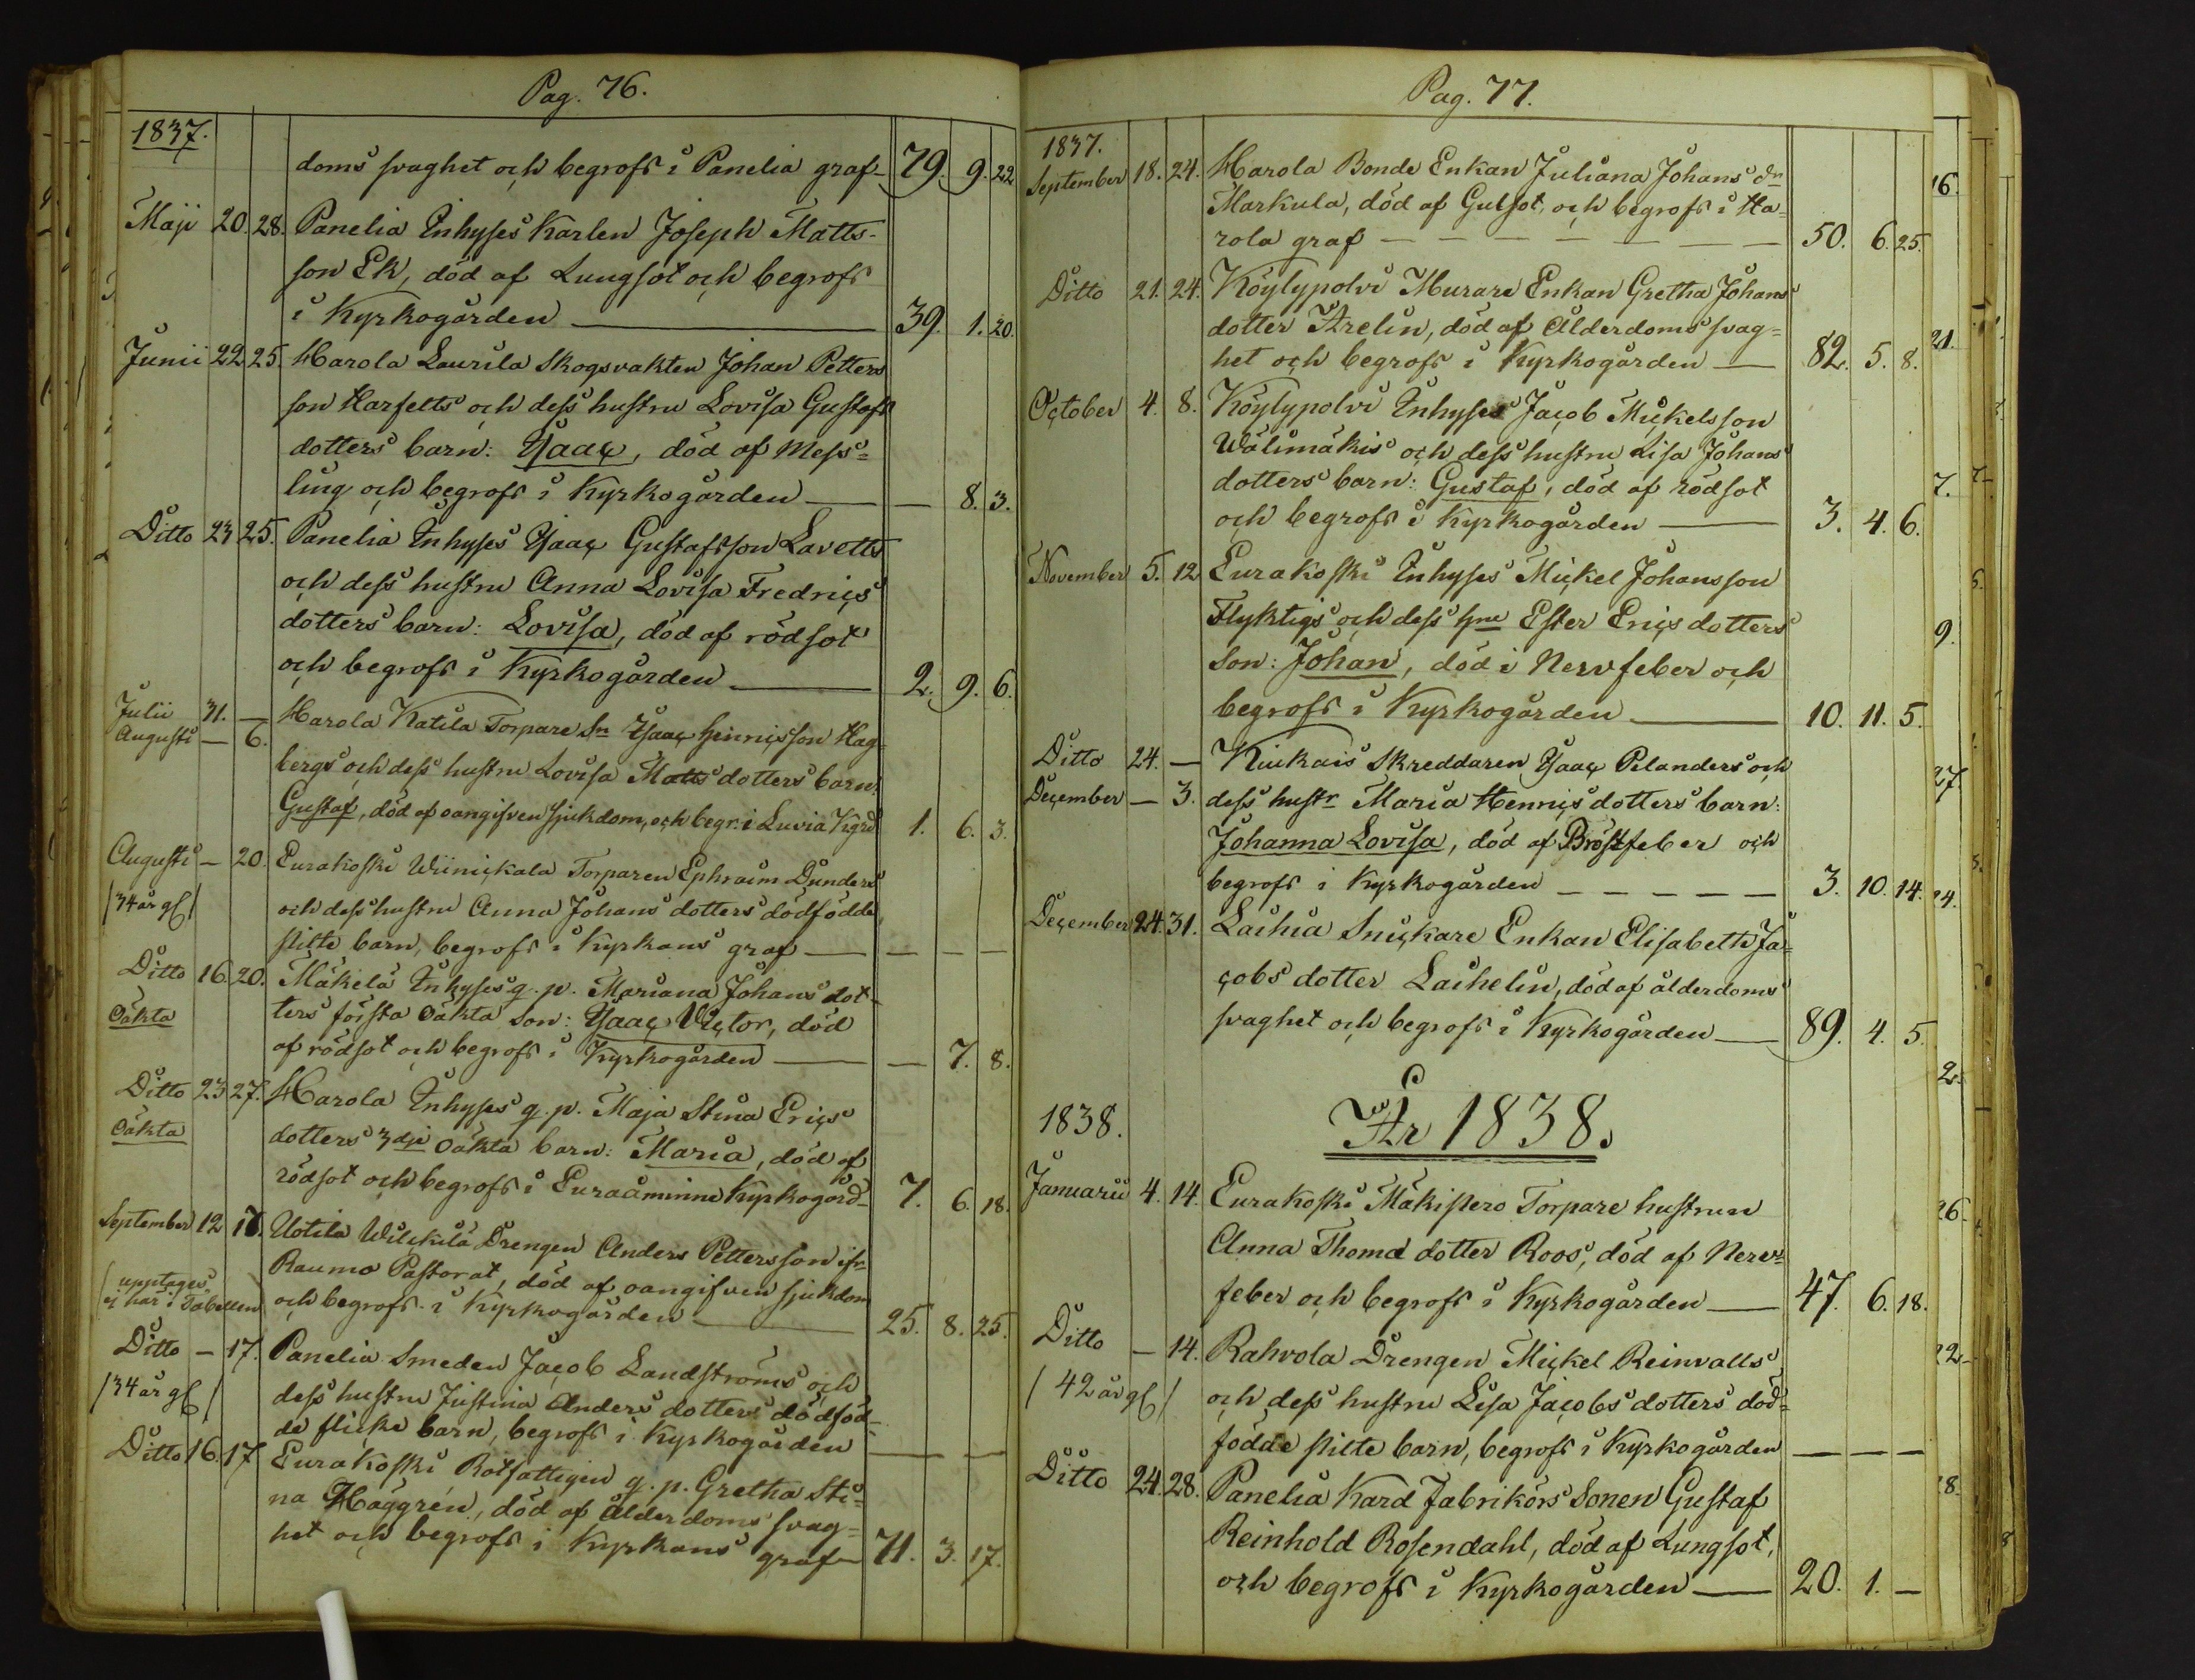 Pag. 76.
1837.
doms svaghet och begrofs i Panelia graf 79. 9. 22.
Maji 20. 28. Panelia Inhyses Karlen Joseph Matts-
son Ek, död af Lungsot och begrofs
i Kyrkogården 39. 1. 20.
Junii 22 25 Harola Laurila Skogsvakten Johan Petters
son Harfelts och dess hustru Lovisa Gustafs
dotters barn: Isaac, död af Mess=
ling och begrofs i Kyrkogården — 8. 3.
Ditto 23 25. Panelia Inhyses Isaac Gustafsson Lavetts
och dess hustru Anna Lovisa Fredrics
dotters barn: Lovisa, död af rödsot
och begrofs i Kyrkogården 2. 9. 6.
Julii 31. — Harola Katila Torpare Sn Isaac Henricsson Hag-
Augusti — 6. bergs och dess hustru Lovisa Matts dotters barn:
Gustaf, död af oangifven sjukdom, och begr. i Luvia Kgrd 1. 6. 3.
Augusti — 20. Eurakoski Wiinickala Torparen Ephraim Dunders
/34 år gl/ och dess hustru Anna Johans dotters dödfödde
pilte barn, begrofs i Kyrkans graf — — —
Ditto 16. 20. Mäkelä Inhyses q. p. Mariana Johans dot-
Oäkta ters första Oäkta Son: Isaac Victor, död
af rödsot och begrofs i Kyrkogården — 7. 8.
Ditto 23 27. Harola Inhyses q. p. Maja Stina Erics
Oäkta dotters 3dje Oäkta barn: Maria, död af
rödsot och begrofs i Euraåminne Kyrkogård 7. 6. 18.
September 12 17. Uotila Wilckilä Drengen Anders Pettersson ifr.
/upptages Raumo Pastorat, död af oangifven sjukdom
ej här i Tabellen och begrofs i Kyrkogården 25. 8. 25.
Ditto — 17. Panelia Smeden Jacob Landströms och
/34 år gl/ dess hustru Justina Anders dotters dödföd-
de flicke barn, begrofs i Kyrkogården — —
Ditto 16. 17 Eurakoski Rotfattigen q. p. Gretha Sti-
na Häggrén, död af Ålderdoms svag=
het och begrofs i Kyrkans graf 71. 3. 17.
Pag. 77.
1837.
September 18. 24. Harola Bonde Enkan Juliana Johans dr
Markula, död af Gulsot, och begrofs i Ha-
rola graf — — — — — — — 50. 6. 25.
Ditto 21. 24. Köylypolvi Murare Enkan Gretha Johans
dotter Arelin, död af Ålderdoms svag=
het och begrofs i Kyrkogården 82. 5. 8.
October 4. 8. Köylypolvi Inhyses Jacob Mickelsson
Wälimäkis och dess hustru Lisa Johans
dotters barn: Gustaf, död af rödsot
och begrofs i Kyrkogården 3. 4. 6.
November 5. 12 Eurakoski Inhyses Mickel Johansson
Flyktigs och dess hru Ester Erics dotters
Son: Johan, död i Nervfeber och
begrofs i Kyrkogården 10. 11. 5.
Ditto 24. — Kiukais Skreddaren Isaac Pelanders och
December — 3. dess hustr Maria Henrics dotters barn:
Johanna Lovisa, död af Bröstfeber och
begrofs i Kyrkogården — — — — — 3. 10. 14.
December 24. 31. Laihia Snickare Enkan Elisabeth Ja-
cobs dotter Laihelin, död af ålderdoms
svaghet och begrofs i Kyrkogården 89. 4. 5.
1838. År 1838.
Januarii 4. 14. Eurakoski Mäkistero Torpare hustrun
Anna Thomæ dotter Roos, död af Nerv-
feber och begrofs i Kyrkogården 47. 6. 18.
Ditto — 14. Rahvola Drengen Mickel Reinvalls
/42 år gl/ och dess hustru Lisa Jacobs dotters död=
födde pilte barn, begrofs i Kyrkogården — — —
Ditto 24. 28. Panelia Kard Fabrikörs Sonen Gustaf
Reinhold Rosendahl, död af Lungsot,
och begrofs i Kyrkogården 20. 1. —